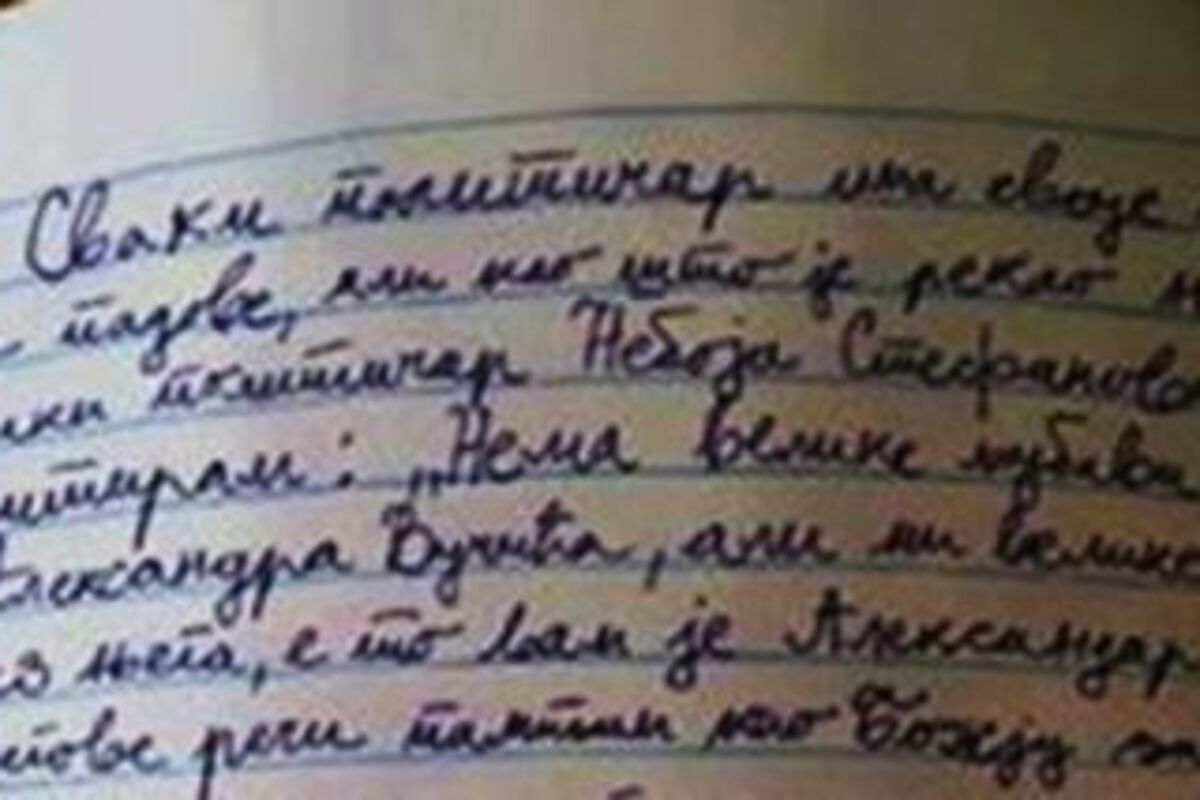 Сваки политичар има своје
падове, али као што је рекао
политичар Небоја Стефанов
Нема велике љубави
Александра Вучића, али ни велике
њега, е то вам је Александар
речи памтим као Божју